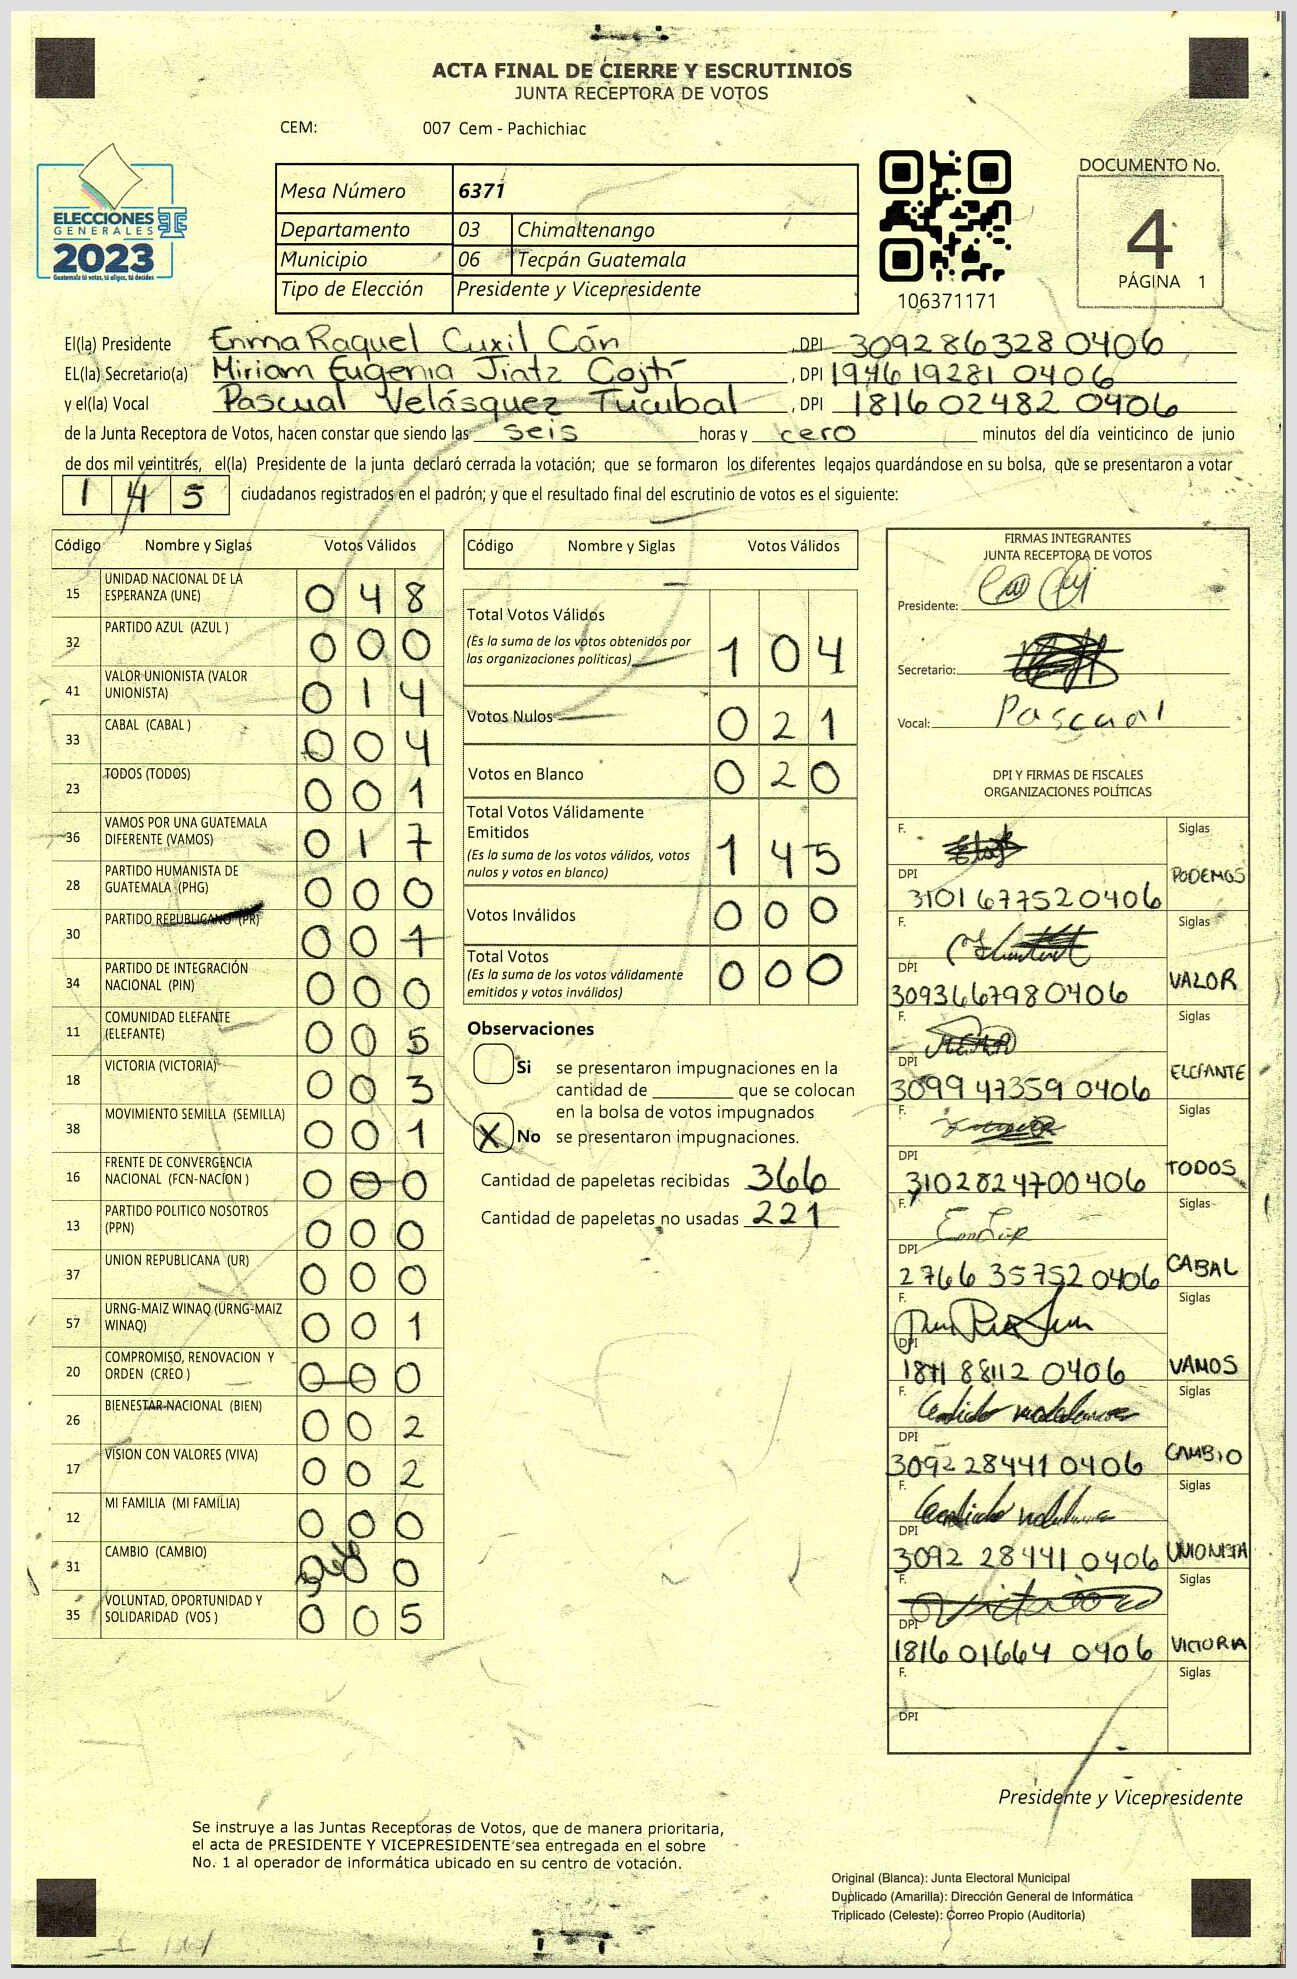 ACTA FINAL DE CIERRE Y ESCRUTINIOS
JUNTA RECEPTORA DE VOTOS
CEM: 007 Cem - Pachichiac
ELECCIONES
GENERALES
2023
Guatemala tú votas, tú eliges, tú decides
Mesa Número 6371
Departamento 03 Chimaltenango
Municipio 06 Tecpán Guatemala
Tipo de Elección Presidente y Vicepresidente
106371171
DOCUMENTO No.
4
PÁGINA 1
El(la) Presidente Enma Raquel Cuxil Cán, DPI 3092863280406
EL(la) Secretario(a) Miriam Eugenia Jiatz Cojtí, DPI 1946192810406
y el(la) Vocal Pascual Velásquez Tucubal, DPI 1816024820406
de la Junta Receptora de Votos, hacen constar que siendo las seis horas y cero minutos del día veinticinco de junio
de dos mil veintitrés, el(la) Presidente de la junta declaró cerrada la votación; que se formaron los diferentes legajos guardándose en su bolsa, que se presentaron a votar
145 ciudadanos registrados en el padrón; y que el resultado final del escrutinio de votos es el siguiente:
Código Nombre y Siglas Votos Válidos
15 UNIDAD NACIONAL DE LA ESPERANZA (UNE) 048
32 PARTIDO AZUL (AZUL ) 000
41 VALOR UNIONISTA (VALOR UNIONISTA) 014
33 CABAL (CABAL ) 004
23 TODOS (TODOS) 001
36 VAMOS POR UNA GUATEMALA DIFERENTE (VAMOS) 017
28 PARTIDO HUMANISTA DE GUATEMALA (PHG) 000
30 PARTIDO REPUBLICANO (PR) 001
34 PARTIDO DE INTEGRACIÓN NACIONAL (PIN) 000
11 COMUNIDAD ELEFANTE (ELEFANTE) 005
18 VICTORIA (VICTORIA) 003
38 MOVIMIENTO SEMILLA (SEMILLA) 001
16 FRENTE DE CONVERGENCIA NACIONAL (FCN-NACION ) 000
13 PARTIDO POLITICO NOSOTROS (PPN) 000
37 UNION REPUBLICANA (UR) 000
57 URNG-MAIZ WINAQ (URNG-MAIZ WINAQ) 001
20 COMPROMISO, RENOVACION Y ORDEN (CREO ) 000
26 BIENESTAR NACIONAL (BIEN) 002
17 VISION CON VALORES (VIVA) 002
12 MI FAMILIA (MI FAMILIA) 000
31 CAMBIO (CAMBIO) 000
35 VOLUNTAD, OPORTUNIDAD Y SOLIDARIDAD (VOS ) 005
Código Nombre y Siglas Votos Válidos
Total Votos Válidos 104
(Es la suma de los votos obtenidos por
las organizaciones políticas)
Votos Nulos 021
Votos en Blanco 020
Total Votos Válidamente
Emitidos 145
(Es la suma de los votos válidos, votos
nulos y votos en blanco)
Votos Inválidos 000
Total Votos 000
(Es la suma de los votos válidamente
emitidos y votos inválidos)
Observaciones
Si se presentaron impugnaciones en la
cantidad de que se colocan
en la bolsa de votos impugnados
X No se presentaron impugnaciones.
Cantidad de papeletas recibidas 366
Cantidad de papeletas no usadas 221
FIRMAS INTEGRANTES
JUNTA RECEPTORA DE VOTOS
Presidente:
Secretario:
Vocal: Pascual
DPI Y FIRMAS DE FISCALES
ORGANIZACIONES POLÍTICAS
F. Siglas
DPI 3101677520406 PODEMOS
F. Siglas
DPI 3093667980406 VALOR
F. Siglas
DPI 3099473590406 ELEFANTE
F. Siglas
DPI 3102824700406 TODOS
F. Siglas
DPI 2766357520406 CABAL
F. Siglas
DPI VAMOS
F. Siglas
DPI 3092284410406 CAMBIO
F. Siglas
DPI 3092284410406 UNIONITA
F. Siglas
DPI 1816016640406 VICTORIA
F. Siglas
DPI
Presidente y Vicepresidente
Se instruye a las Juntas Receptoras de Votos, que de manera prioritaria,
el acta de PRESIDENTE Y VICEPRESIDENTE sea entregada en el sobre
No. 1 al operador de informática ubicado en su centro de votación.
Original (Blanca): Junta Electoral Municipal
Duplicado (Amarilla): Dirección General de Informática
Triplicado (Celeste): Correo Propio (Auditoría)